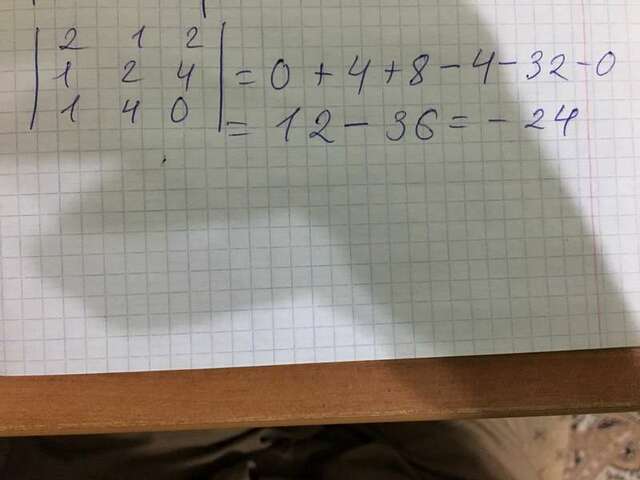 | 2 1 2 |
| 1 2 4 | = 0 + 4 + 8 - 4 - 32 - 0
| 1 4 0 | = 12 - 36 = - 24